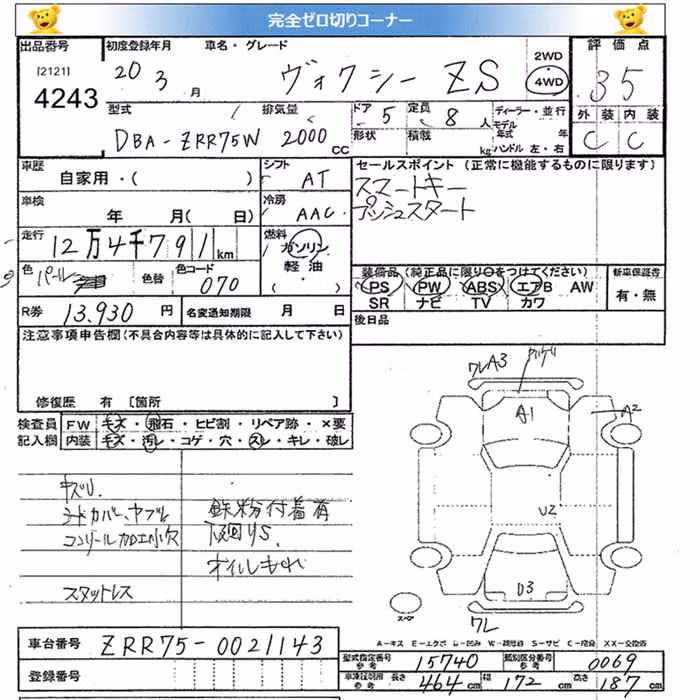 完全ゼロ切りコーナー
出品番号
[2121]
4243
初度登録年月
20 3 月
車名・グレード
ヴォクシー ZS
2WD
4WD
評価点
3 5
外装 内装
C C
型式
DBA-ZRR75W
排気量
2000 CC
ドア 5
形状
定員 8 人
積載 kg
ディーラー・並行
モデル年式 年
ハンドル 左・右
車歴
自家用・( )
シフト AT
車検
年 月( 日)
冷房 AAC
走行
12万4千791km
燃料
ガソリン
軽油
( ・ )
色 パール
色替
色コード 070
R券 13,930 円
名変通知期限 月 日
セールスポイント (正常に機能するものに限ります)
スマートキー
プッシュスタート
装備品(純正品に限り○をつけてください)
PS PW ABS エアB AW
SR ナビ TV カワ
新車保証書
有・無
後日品
注意事項申告欄(不具合内容等は具体的に記入して下さい)
修復歴 有 [箇所 ]
検査員記入欄
FW キズ・飛石・ヒビ割・リペア跡・×要
内装 キズ・汚レ・コゲ・穴・スレ・キレ・破レ
鉄粉付着有
下回りS
オイルしもれ
スタットレス
ワレA3
A1
A2
U2
U3
ワレ
スペア
車台番号 ZRR75-0021143
登録番号
型式指定番号 参考 15740
類別区分番号 参考 0069
長さ 464 cm 幅 172 cm 高さ 187 cm